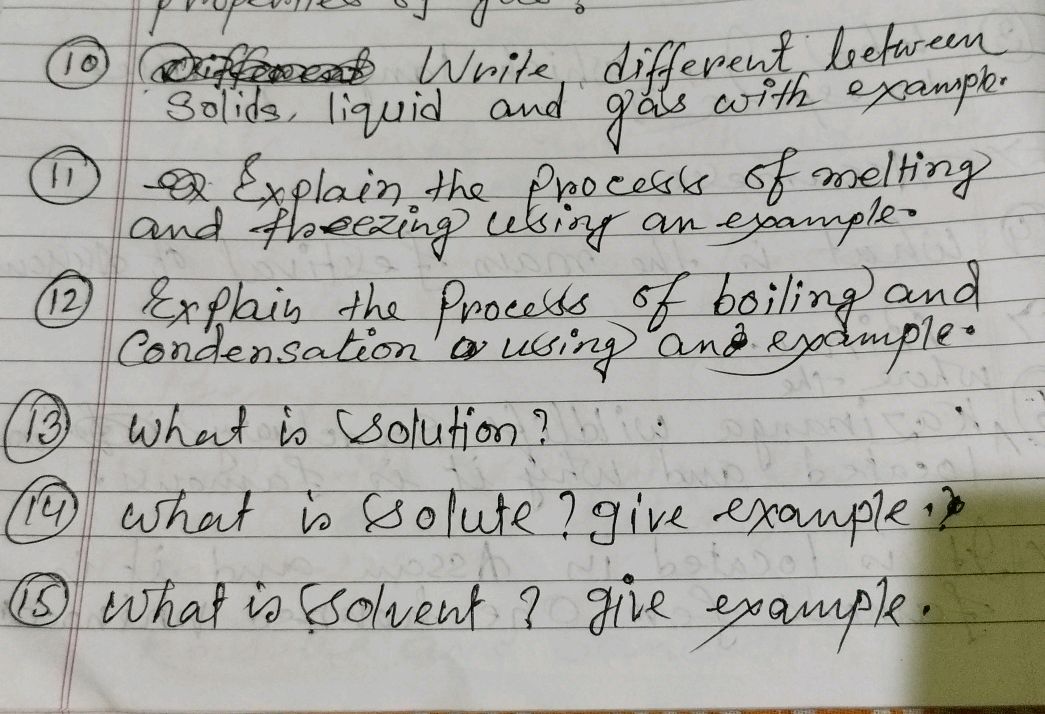 properties of gas?
10 Write different between
Solids, liquid and gas with example.
11 Explain the Process of melting
and freezing using an example.
12 Explain the Process of boiling and
Condensation using and example.
13 what is solution?
14 what is solute? give example.?
15 what is solvent? give example.